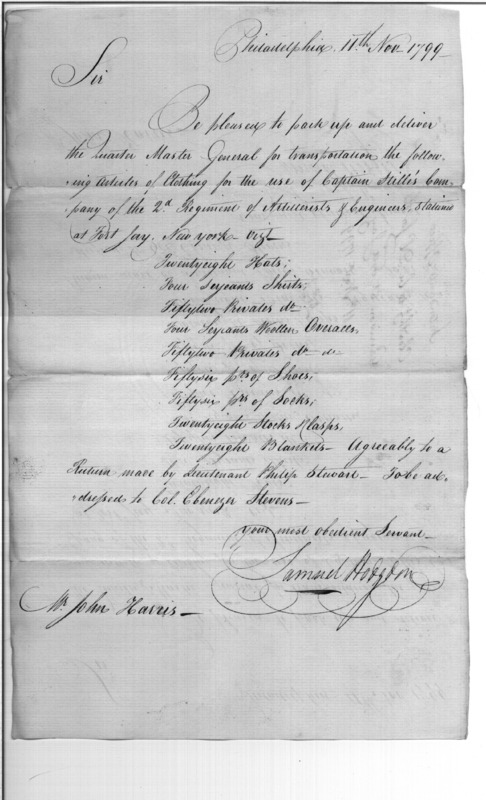 Philadelphia 11th Nov. 1799
Sir
Be pleased to pack up and deliver
the Quarter Master General for transportation the follow-
ing Articles of Clothing for the use of Captain Stille's Com-
pany of the 2d Regiment of Artillerists & Engineers, Stationed
at Fort Jay. New York vizt
Twentyeight Hats;
Four Serjeants Shirts,
Fiftytwo Privates do
Four Serjeants Woollen Overalls,
Fiftytwo Privates do do
Fiftysix prs of Shoes,
Fiftysix prs of Socks,
Twentyeight Stocks & Clasps,
Twentyeight Blankets - Agreeably to a
Return made by Lieutenant Philip Steward - To be ad-
dressed to Col. Ebenezer Stevens -
your most obedient Servant -
Samuel Hodgdon
Mr John Harris -